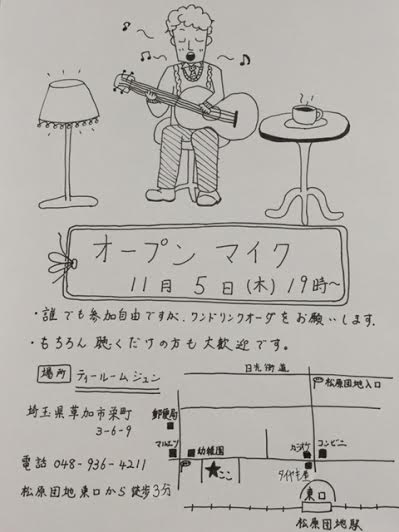 オープン マイク
11月 5日(木) 19時～
・誰でも参加自由ですが、ワンドリンクオーダをお願いします.
・もちろん 聴くだけの方も大歓迎です。
場所 ティールームジュン
埼玉県草加市栄町
3-6-9
電話 048-936-4211
松原団地東口から徒歩3分
日光街道
松原団地入口
郵便局
マルエツ
幼稚園
カラオケ
コンビニ
ここ
タイヤキ屋
東口
松原団地駅